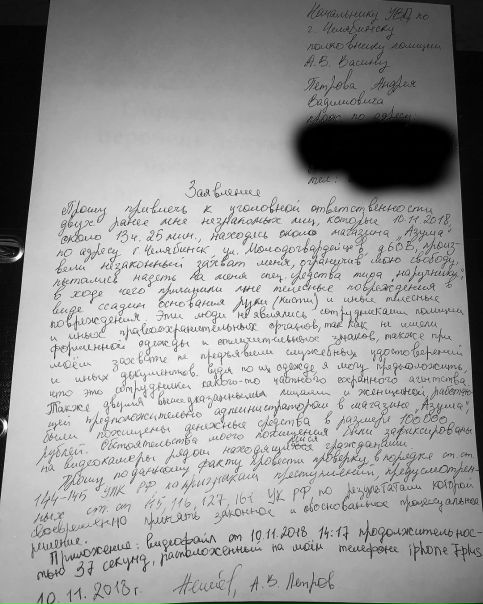 Начальнику УВД по
г. Челябинску
полковнику полиции
А.В. Васину
Петрова Андрея
Вадимовича
прож по адресу
тел:
Заявление
Прошу привлечь к уголовной ответственности
двух ранее мне незнакомых лиц, которые 10.11.2018,
около 13ч. 25 мин., находясь около магазина "Азума"
по адресу г. Челябинск ул. Молодогвардейцев д 60В, произ-
вели незаконный захват меня, ограничив мою свободу,
пытались надеть на меня спец. средства типа наручники,
в ходе чего причинили мне телесные повреждения в
виде ссадин основания руки (кисти) и иные телесные
повреждения. Эти люди не являлись сотрудниками полиции
и иных правоохранительных органов, так как не имели
форменной одежды и отличительных знаков, также при
моём захвате не предъявили служебных удостоверений
и иных документов, судя по их одежде я могу предположить,
что это сотрудники какого-то частного охранного агентства
Также двумя вышеуказанными лицами и женщиной работаю-
щей предположительно администратором в магазине "Азума"
были похищены денежные средства в размере 100 000
рублей. Обстоятельства моего похищения были зафиксированы
на видеокамеры рядом находящимися гражданами
Прошу по данному факту провести проверку в порядке ст. ст.
144-145 УПК РФ на признаки преступлений, предусмотрен-
ных ст. ст 115, 116, 127, 161 УК РФ по результатам которой
своевременно принять законное и обоснованное процессуальное
решение.
Приложение: видеофайл от 10.11.2018 14:17 продолжительнос-
тью 37 секунд, расположенный на моём телефоне iphone 7 plus
10.11.2018г. А.В. Петров